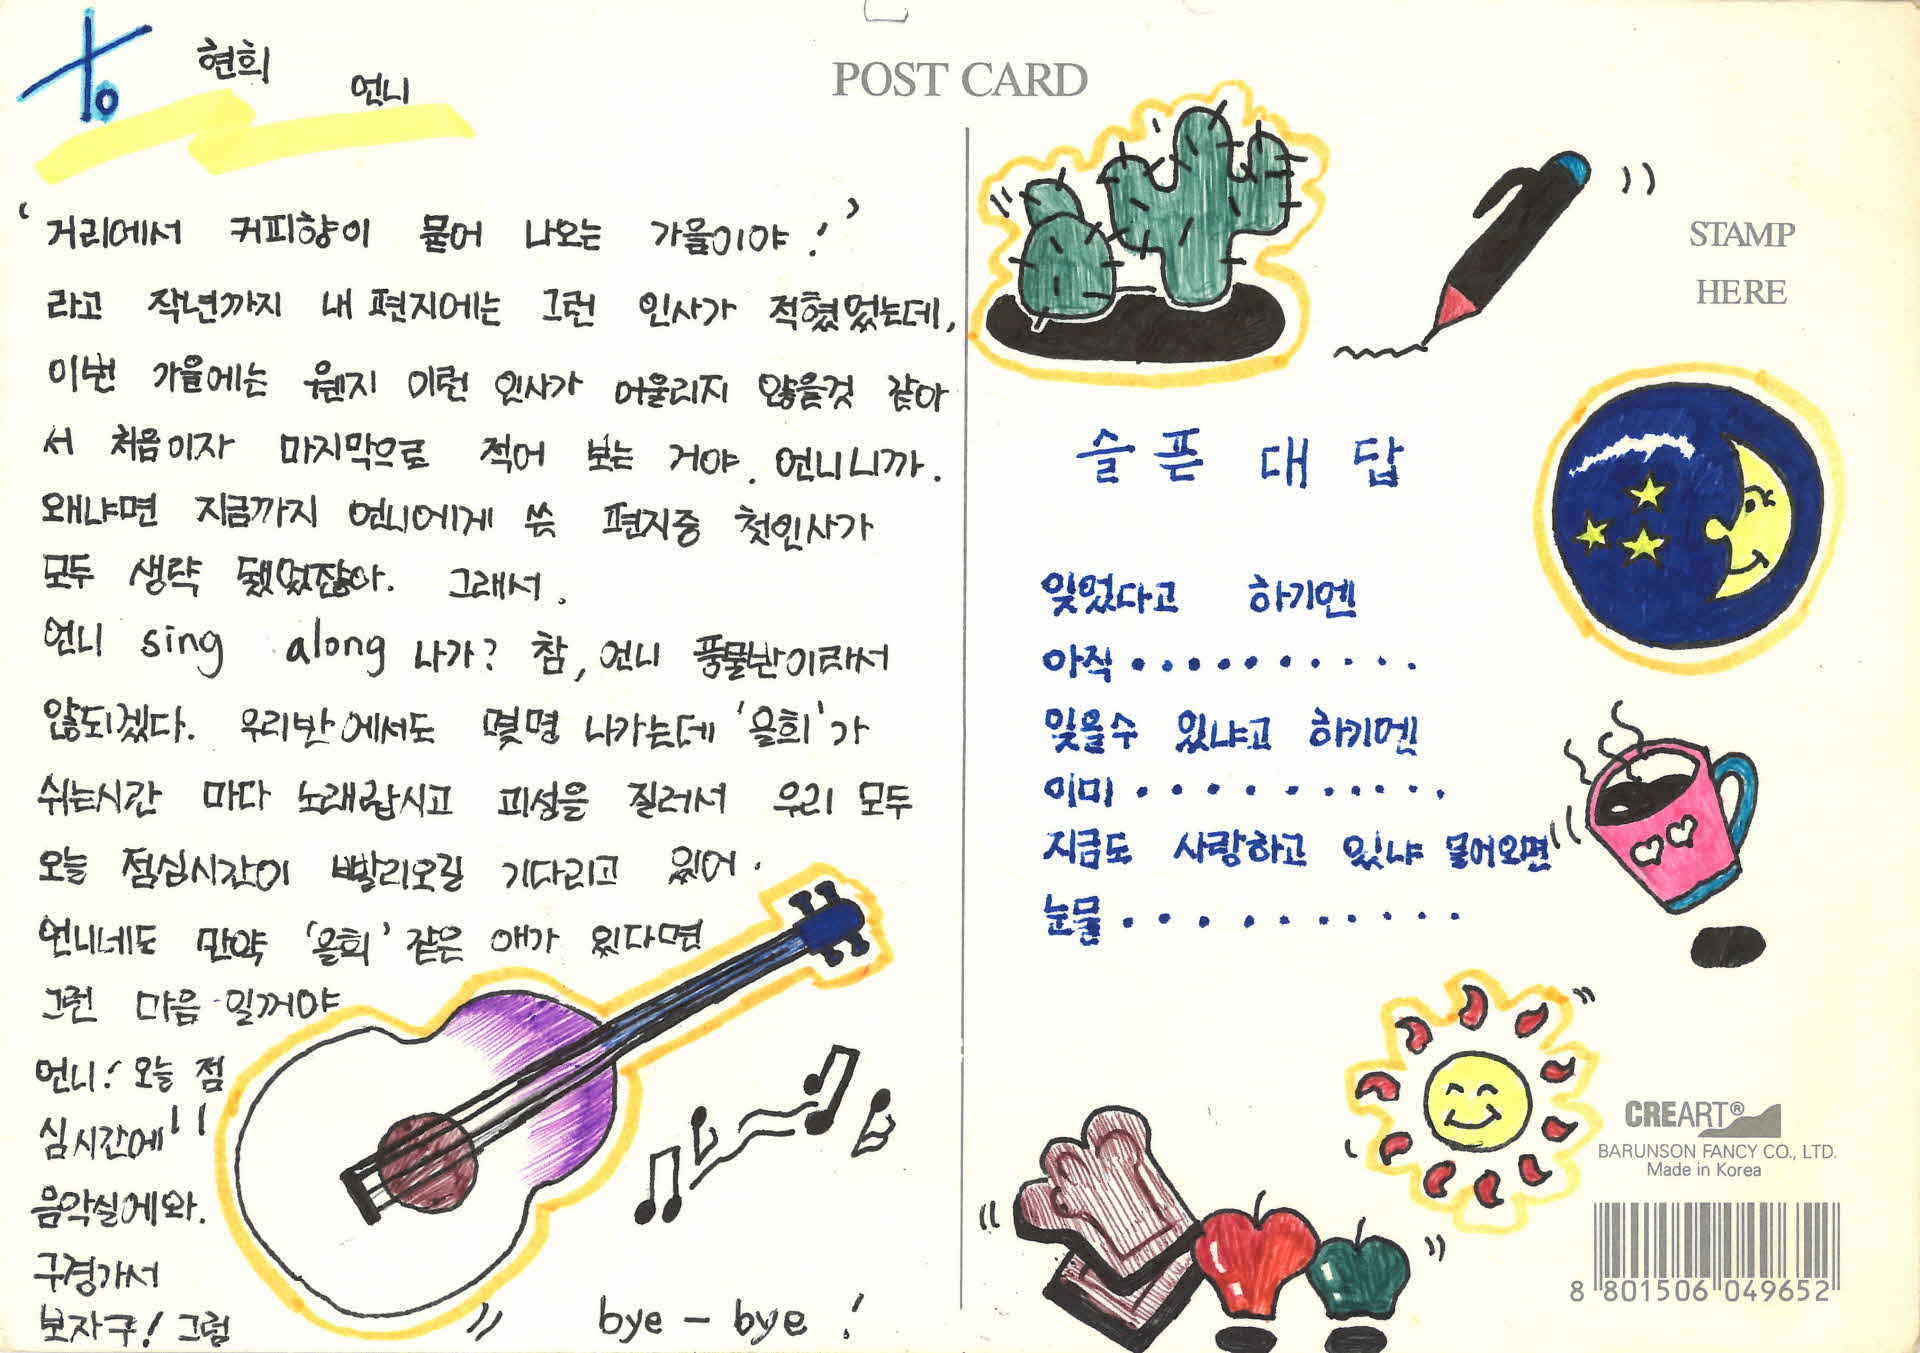 to 현희 언니
POST CARD
STAMP
HERE
'거리에서 커피향이 묻어 나오는 가을이야!'
라고 작년까지 내 편지에는 그런 인사가 적혔었는데,
이번 가을에는 웬지 이런 인사가 어울리지 않을것 같아
서 처음이자 마지막으로 적어 보는 거야. 언니니까.
왜냐면 지금까지 언니에게 쓴 편지중 첫인사가
모두 생략 됐었잖아. 그래서.
언니 sing along 나가? 참, 언니 풍물반이라서
않되겠다. 우리반에서도 몇명 나가는데 '을희'가
쉬는시간 마다 노래랍시고 괴성을 질러서 우리 모두
오늘 점심시간이 빨리오길 기다리고 있어.
언니네도 만약 '을희' 같은 애가 있다면
그런 마음 일꺼야
언니! 오늘 점
심시간에!!
음악실에와.
구경가서
보자구! 그럼
bye - bye !
슬픈 대답
잊었다고 하기엔
아직 ..........
잊을수 있냐고 하기엔
이미 ..........
지금도 사랑하고 있냐 물어오면
눈물 ..........
CREART®
BARUNSON FANCY CO., LTD.
Made in Korea
8 801506 049652